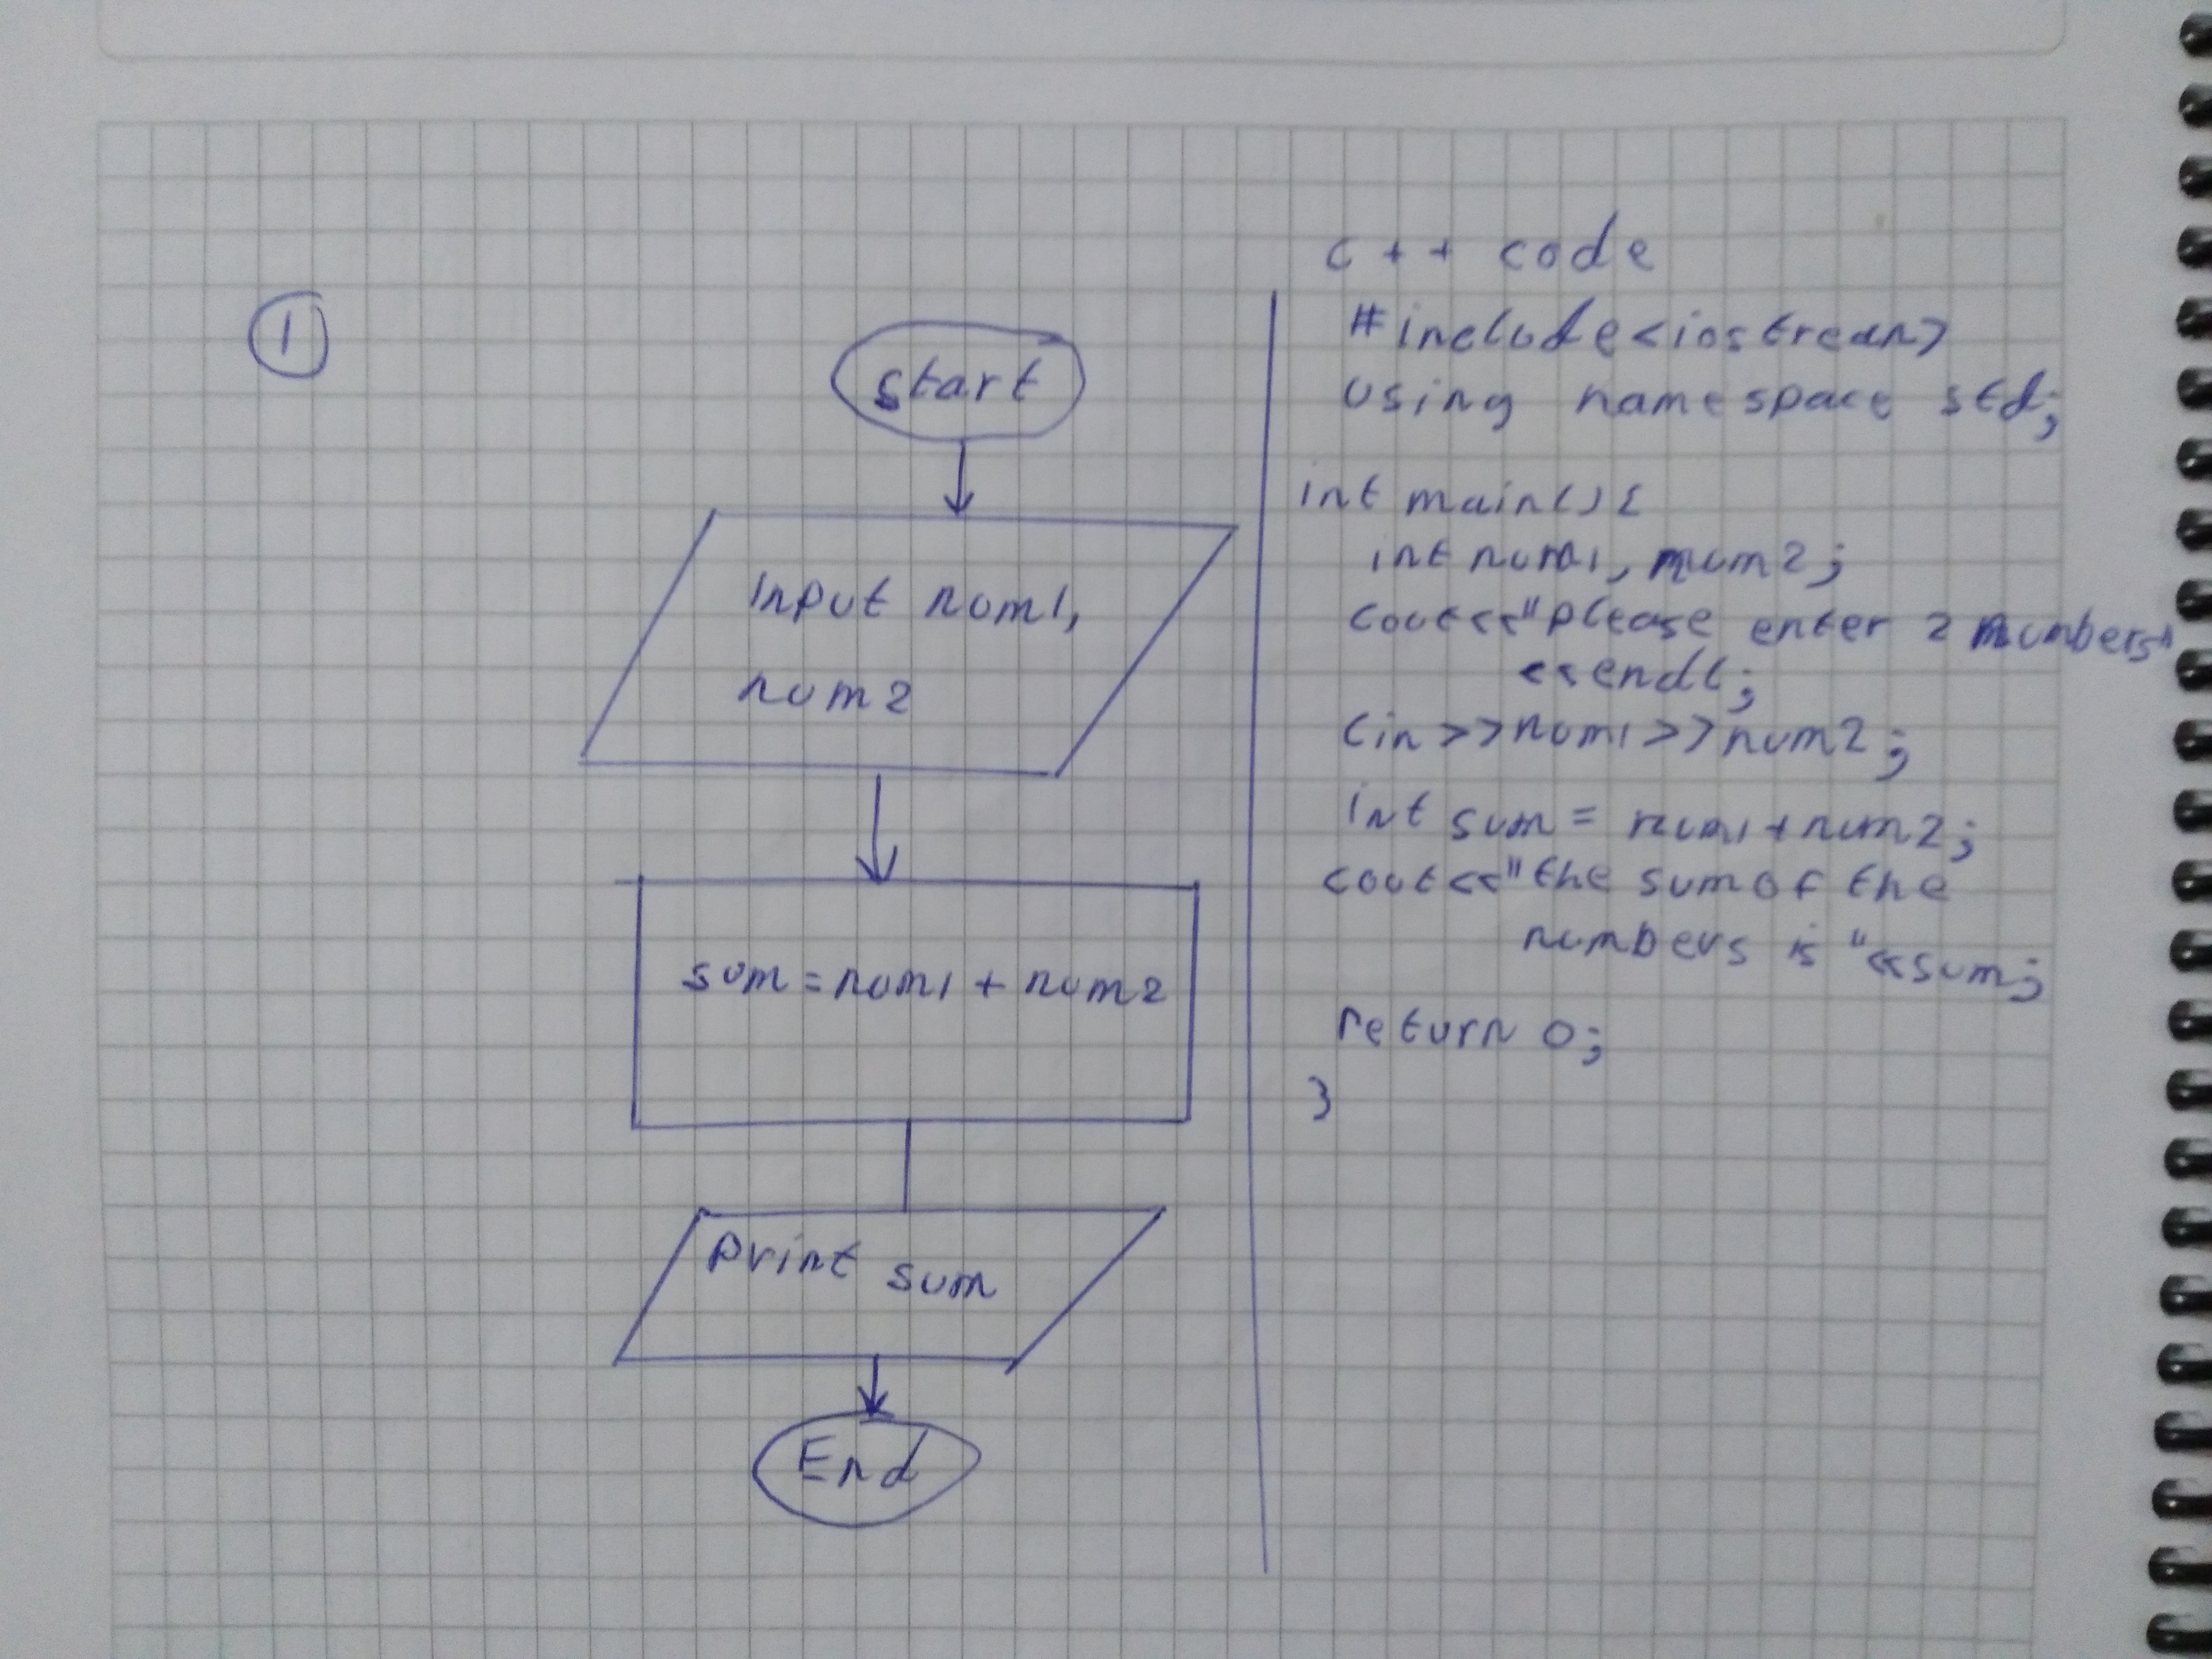 1
start
Input num1,
num2
sum = num1 + num2
print sum
End
c++ code
#include<iostream>
using namespace std;
int main(){
int num1, num2;
cout<<"please enter 2 numbers"
<<endl;
cin>>num1>>num2;
int sum = num1+num2;
cout<<"the sum of the
numbers is "<<sum;
return 0;
}